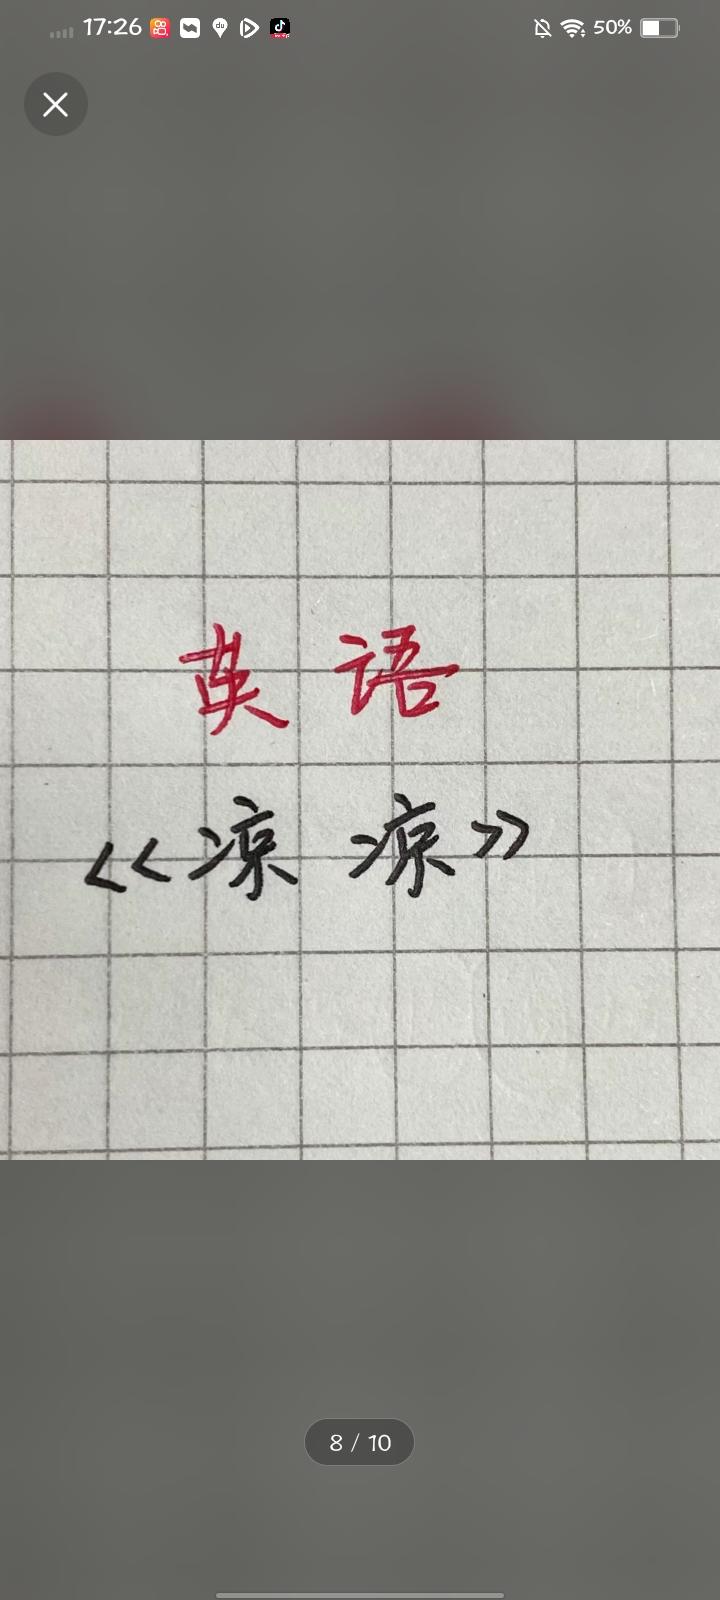 17:26 50%
英语
<<凉凉>>
8 / 10